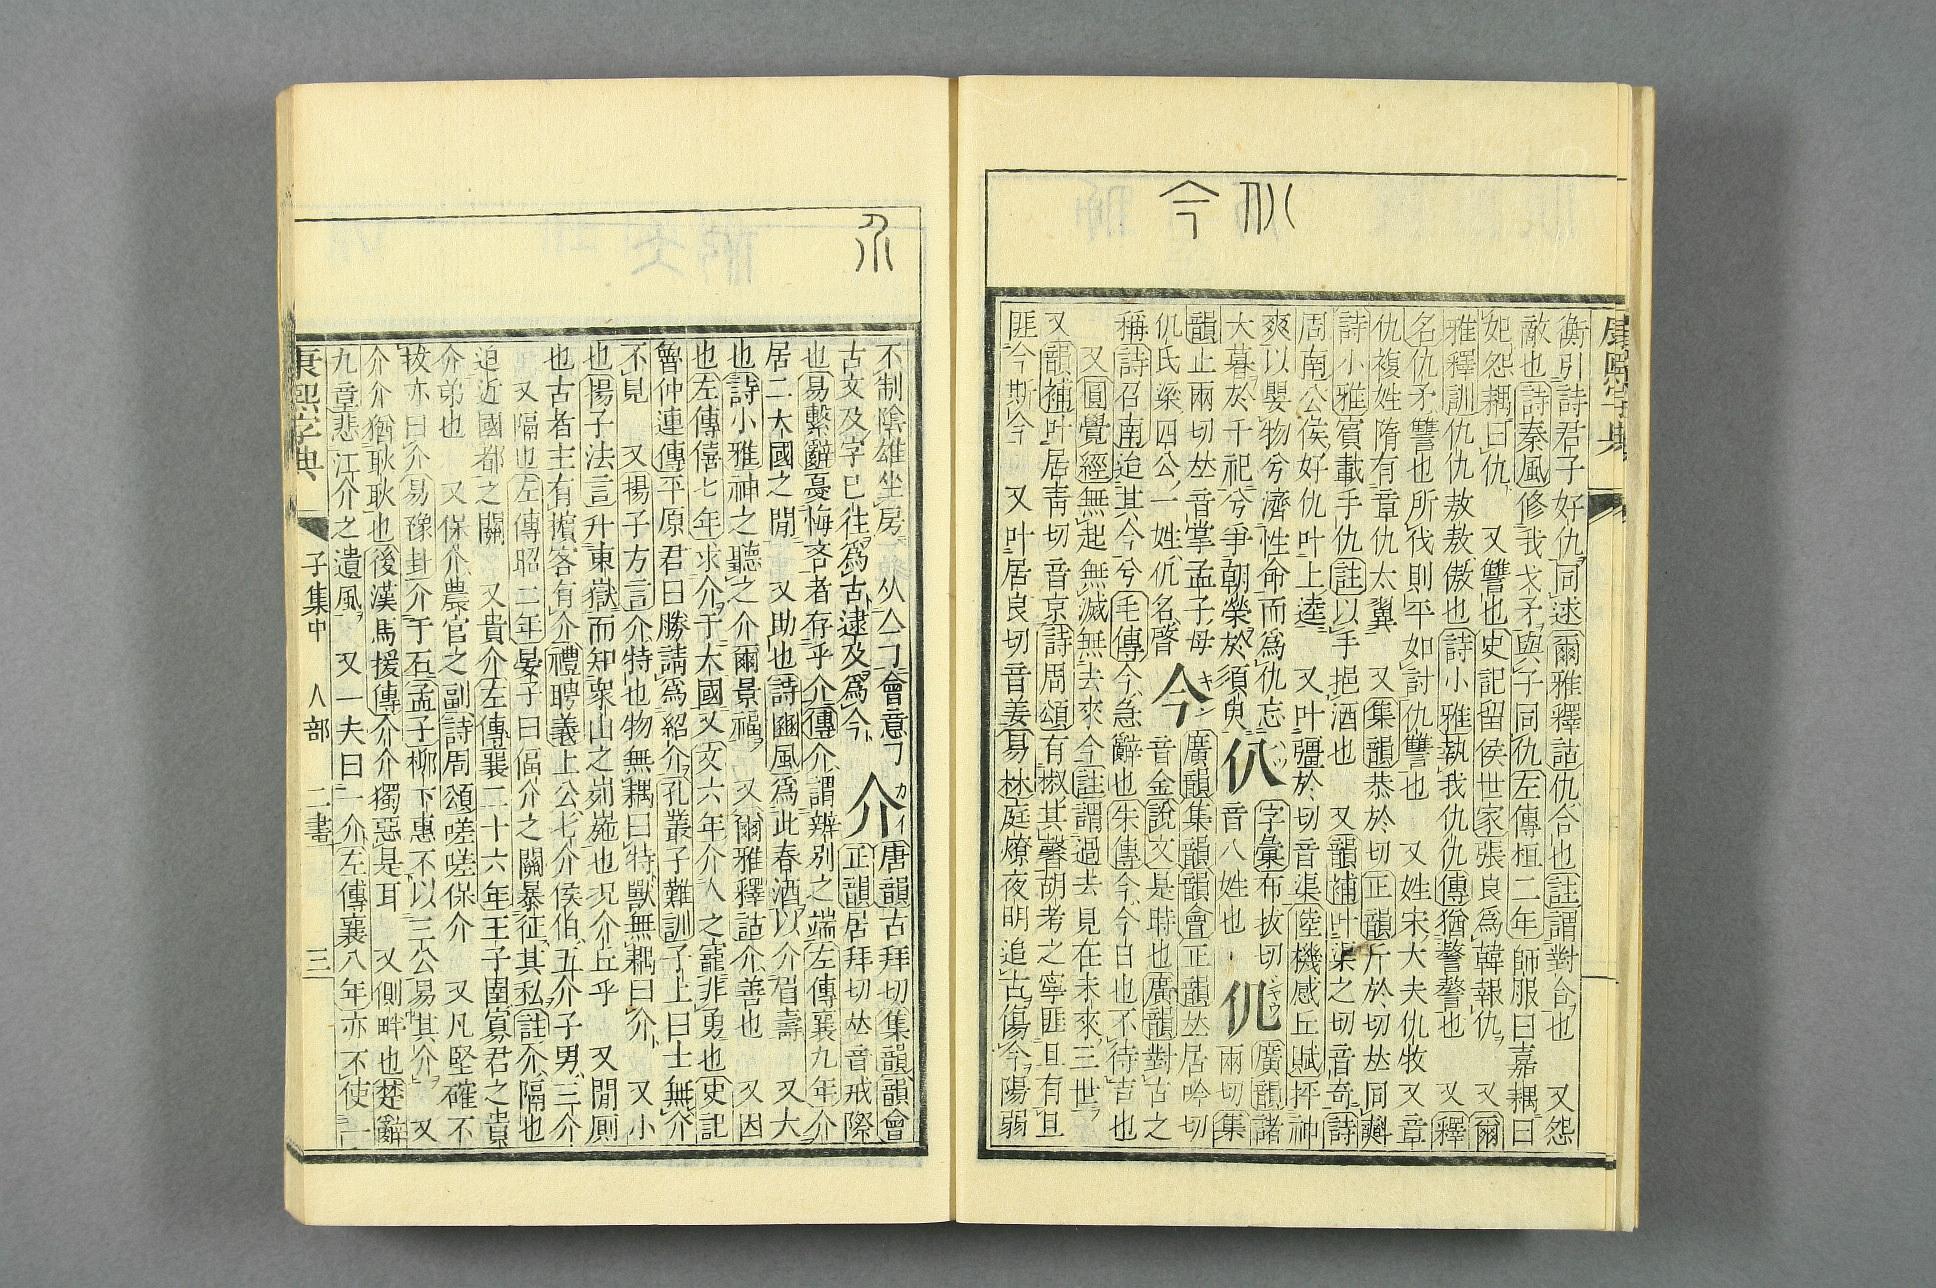 康熙字典
衡引詩君子好仇同逑爾雅釋詁仇合也註謂對合也 又怨
敵也詩秦風修我戈矛與子同仇左傳桓二年師服曰嘉耦曰
妃怨耦曰仇 又讐也史記留侯世家張良爲韓報仇 又爾
雅釋訓仇仇敖敖傲也詩小雅執我仇仇傳猶謷謷也 又釋
名仇矛讐也所伐則平如討仇讐也 又姓宋大夫仇牧 又章
仇複姓隋有章仇太翼 又集韻恭於切正韻斤於切𠀤同㪺
詩小雅賓載手仇註以手挹酒也 又韻補叶渠之切音奇詩
周南公侯好仇叶上逵 又叶彊於切音渠陸機感丘賦抨神
爽以嬰物兮濟性命而爲仇忘
大暮於千祀兮爭朝榮於須臾
仈 ハツ 字彙布拔切
音八姓也
仉 シヤウ 廣韻諸
兩切集
韻止兩切𠀤音掌孟子母
仉氏梁四公一姓仉名䏿
今 キン 廣韻集韻韻會正韻𠀤居吟切
音金說文是時也廣韻對古之
稱詩召南迨其今今兮毛傳今急辭也朱傳今今日也不待吉也
又圓覺經無起無滅無去來今註謂過去見在未來三世
又韻補叶居靑切音京詩周頌有椒其馨胡考之寧匪且有且
匪今斯今 又叶居良切音姜易林庭燎夜明追古傷今陽弱
不制陰雄坐房 从亼𠃍會意𠃍
古文及字巳往爲古逮及爲今
介 カイ 唐韻古拜切集韻韻會
正韻居拜切𠀤音戒際
也易繫辭憂悔吝者存乎介傳介謂辨別之端左傳襄九年介
居二大國之閒 又助也詩豳風爲此春酒以介眉壽 又大
也詩小雅神之聽之介爾景福 又爾雅釋詁介善也 又因
也左傳僖七年求介于大國又文六年介人之寵非勇也史記
魯仲連傳平原君曰勝請爲紹介孔叢子雜訓子上曰士無介
不見 又揚子方言介特也物無耦曰特獸無耦曰介 又小
也揚子法言升東嶽而知衆山之峛崺也况介丘乎 又閒厠
也古者主有擯客有介禮聘義上公七介侯伯五介子男三介
又隔也左傳昭二年晏子曰偪介之關暴征其私註介隔也
迫近國都之關 又貴介左傳襄二十六年王子圍寡君之貴
介弟也 又保介農官之副詩周頌嗟嗟保介 又凡堅確不
拔亦曰介易豫卦介于石孟子柳下惠不以三公易其介 又
介介猶耿耿也後漢馬援傳介介獨惡是耳 又側畔也楚辭
九章悲江介之遺風 又一夫曰一介左傳襄八年亦不使一
康熙字典 子集中 人部 二畫 三